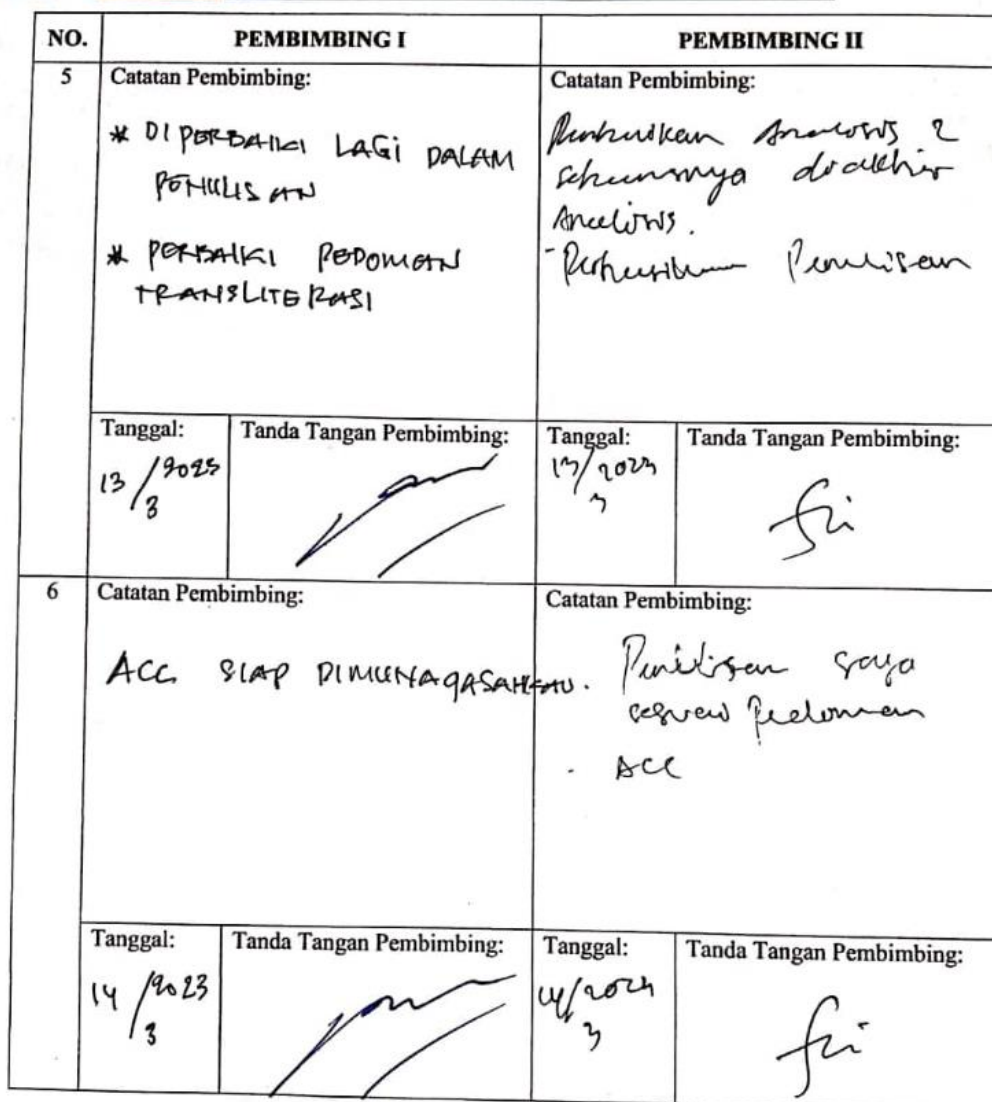 NO.
PEMBIMBING I
PEMBIMBING II
5
Catatan Pembimbing:
* DIPERBAIKI LAGI DALAM
PENULISAN
* PERBAIKI PEDOMAN
TRANSLITERASI
Catatan Pembimbing:
Analisis 2
diakhir
Analisis.
- Penulisan
Tanggal:
13/3 2023
Tanda Tangan Pembimbing:
Tanggal:
13/3 2023
Tanda Tangan Pembimbing:
6
Catatan Pembimbing:
ACC SIAP DIMUNAQASAHKAN.
Catatan Pembimbing:
Pedoman
. ACC
Tanggal:
14/3 2023
Tanda Tangan Pembimbing:
Tanggal:
14/3 2023
Tanda Tangan Pembimbing: